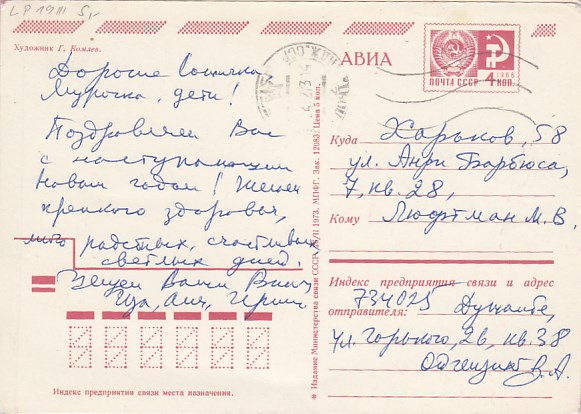 LP 19III 5,-
Художник Г. Комлев.
Дорогие
Мурочка, дети!
Поздравляем Вас
с наступающим
Новым годом! Желаем
крепкого здоровья,
много радостных, счастливых
светлых дней.
Целуем Ваши
Ица, Аня,
Индекс предприятия связи места назначения.
* Издание Министерства связи СССР. 1973. МПФГ. Зак. 12083. Цена 5 коп.
АВИА
ПОЧТА СССР 4 КОП.
1966
Куда Харьков, 58
ул. Анри Барбюса,
7, кв. 28,
Кому Люфтман М. В.
Индекс предприятия связи и адрес
отправителя: 734025 Душанбе,
ул. Горького, 26, кв. 38
В. А.